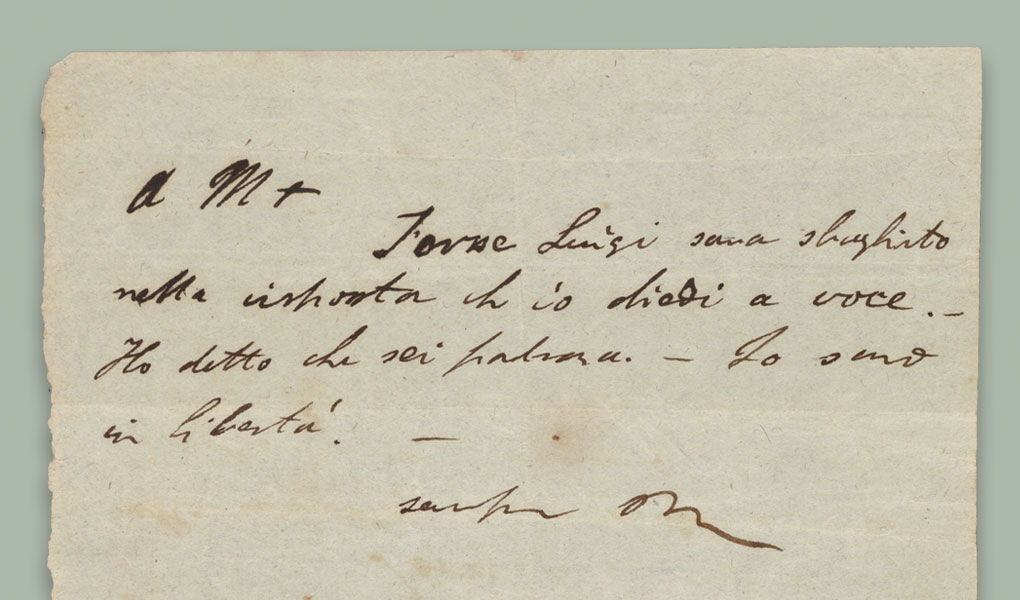 A M +
Forse Luigi sarà sbagliato
nella risposta ch io diedi a voce. _
Ho detto che sei padrona. — Io sarò
in libertá. —
sempre